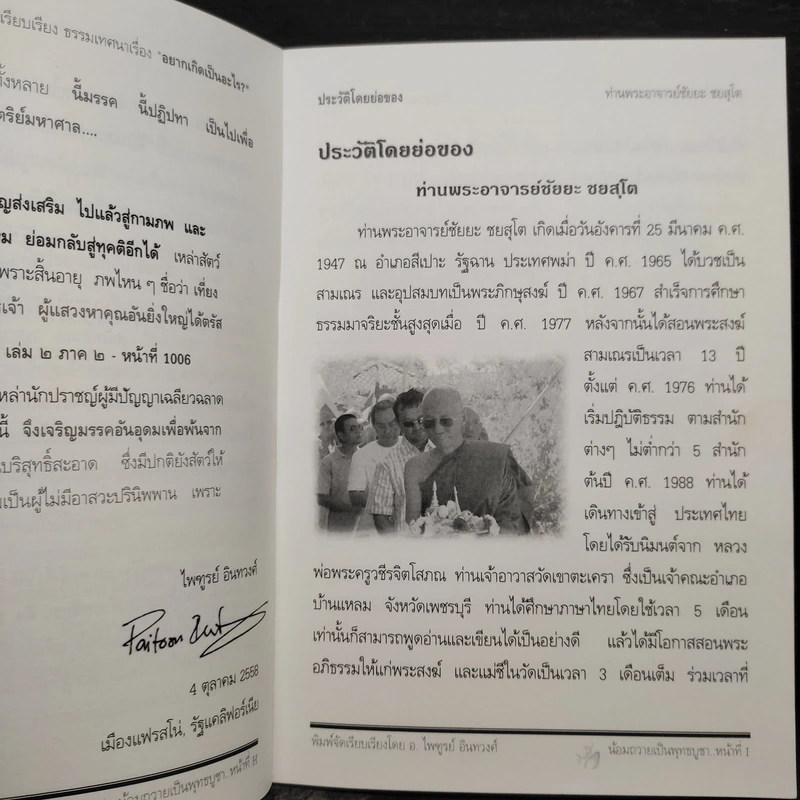 เรียบเรียง ธรรมเทศนาเรื่อง "อยากเกิดเป็นอะไร?"
ทั้งหลาย นี้มรรค นี้ปฏิปทา เป็นไปเพื่อ
ตริย์มหาศาล....
ญส่งเสริม ไปแล้วสู่กามภพ และ
ม ย่อมกลับสู่ทุคติอีกได้ เหล่าสัตว์
เพราะสิ้นอายุ ภพไหน ๆ ชื่อว่า เที่ยง
ะเจ้า ผู้แสวงหาคุณอันยิ่งใหญ่ได้ตรัส
เล่ม ๒ ภาค ๒ - หน้าที่ 1006
หล่านักปราชญ์ผู้มีปัญญาเฉลียวฉลาด
นี้ จึงเจริญมรรคอันอุดมเพื่อพ้นจาก
นบริสุทธิ์สะอาด ซึ่งมีปกติยังสัตว์ให้
มเป็นผู้ไม่มีอาสวะปรินิพพาน เพราะ
ไพฑูรย์ อินทวงศ์
4 ตุลาคม 2558
เมืองแฟรสโน่, รัฐแคลิฟอร์เนีย
น้อมถวายเป็นพุทธบูชา..หน้าที่ H
ประวัติโดยย่อของ ท่านพระอาจารย์ชัยยะ ชยสุโต
ประวัติโดยย่อของ
ท่านพระอาจารย์ชัยยะ ชยสุโต
ท่านพระอาจารย์ชัยยะ ชยสุโต เกิดเมื่อวันอังคารที่ 25 มีนาคม ค.ศ.
1947 ณ อำเภอสีเปาะ รัฐฉาน ประเทศพม่า ปี ค.ศ. 1965 ได้บวชเป็น
สามเณร และอุปสมบทเป็นพระภิกษุสงฆ์ ปี ค.ศ. 1967 สำเร็จการศึกษา
ธรรมมาจริยะชั้นสูงสุดเมื่อ ปี ค.ศ. 1977 หลังจากนั้นได้สอนพระสงฆ์
สามเณรเป็นเวลา 13 ปี
ตั้งแต่ ค.ศ. 1976 ท่านได้
เริ่มปฏิบัติธรรม ตามสำนัก
ต่างๆ ไม่ต่ำกว่า 5 สำนัก
ต้นปี ค.ศ. 1988 ท่านได้
เดินทางเข้าสู่ ประเทศไทย
โดยได้รับนิมนต์จาก หลวง
พ่อพระครูวชีรจิตโสภณ ท่านเจ้าอาวาสวัดเขาตะเครา ซึ่งเป็นเจ้าคณะอำเภอ
บ้านแหลม จังหวัดเพชรบุรี ท่านได้ศึกษาภาษาไทยโดยใช้เวลา 5 เดือน
เท่านั้นก็สามารถพูดอ่านและเขียนได้เป็นอย่างดี แล้วได้มีโอกาสสอนพระ
อภิธรรมให้แก่พระสงฆ์ และแม่ชีในวัดเป็นเวลา 3 เดือนเต็ม ร่วมเวลาที่
พิมพ์จัดเรียบเรียงโดย อ. ไพฑูรย์ อินทวงศ์ น้อมถวายเป็นพุทธบูชา..หน้าที่ I